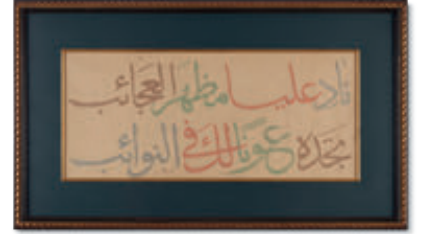 ناد عليا مظهر العجائب
تجده عونا لك في النوائب